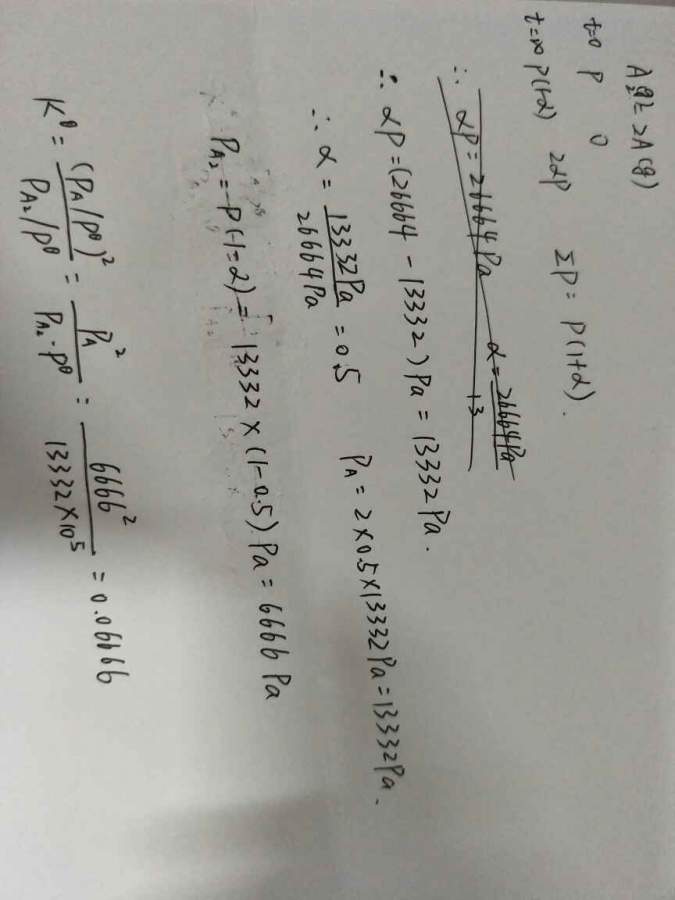 A₂(g) ⇌ 2A(g)
t=0 P 0
t=∞ P(1-α) 2αP ΣP = P(1+α).
∴ αP = 26664Pa α = 26664Pa / 13
∴ αP = (26664 - 13332) Pa = 13332 Pa.
∴ α = 13332Pa / 26664Pa = 0.5 P_A = 2×0.5×13332Pa = 13332Pa.
P_A₂ = P(-1=α) = 13332 × (1-0.5) Pa = 6666 Pa
K^θ = (P_A/P^θ)² / P_A₂/P^θ = P_A² / P_A₂·P^θ = 6666² / 13332×10⁵ = 0.06666